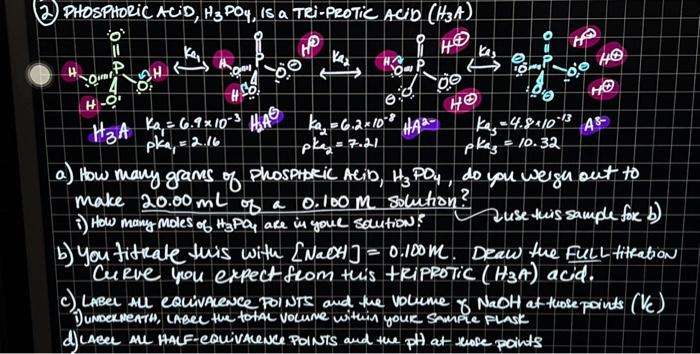 ② PHOSPHORIC ACID, H₃PO₄, IS A TRI-PROTIC ACID (H₃A)
Ka₁ H⊕ Ka₂ H⊕ Ka₃ H⊕ H⊕ H⊕
H₃A Ka₁ = 6.9×10⁻³ H₂A⊖ Ka₂ = 6.2×10⁻⁸ HA²⁻ Ka₃ = 4.8×10⁻¹³ A³⁻
pKa₁ = 2.16 pKa₂ = 7.21 pKa₃ = 10.32
a) How many grams of PHOSPHORIC ACID, H₃PO₄, do you weigh out to
make 20.00 mL of a 0.100 M solution?
i) How many moles of H₃PO₄ are in your solution? use this sample for b)
b) You titrate this with [NaOH] = 0.100 M. Draw the FULL titration
curve you expect from this TRIPROTIC (H₃A) acid.
c) LABEL ALL EQUIVALENCE POINTS and the volume of NaOH at those points (Ve)
i) UNDERNEATH, LABEL the total volume within your SAMPLE FLASK
d) LABEL ALL HALF-EQUIVALENCE POINTS and the pH at those points